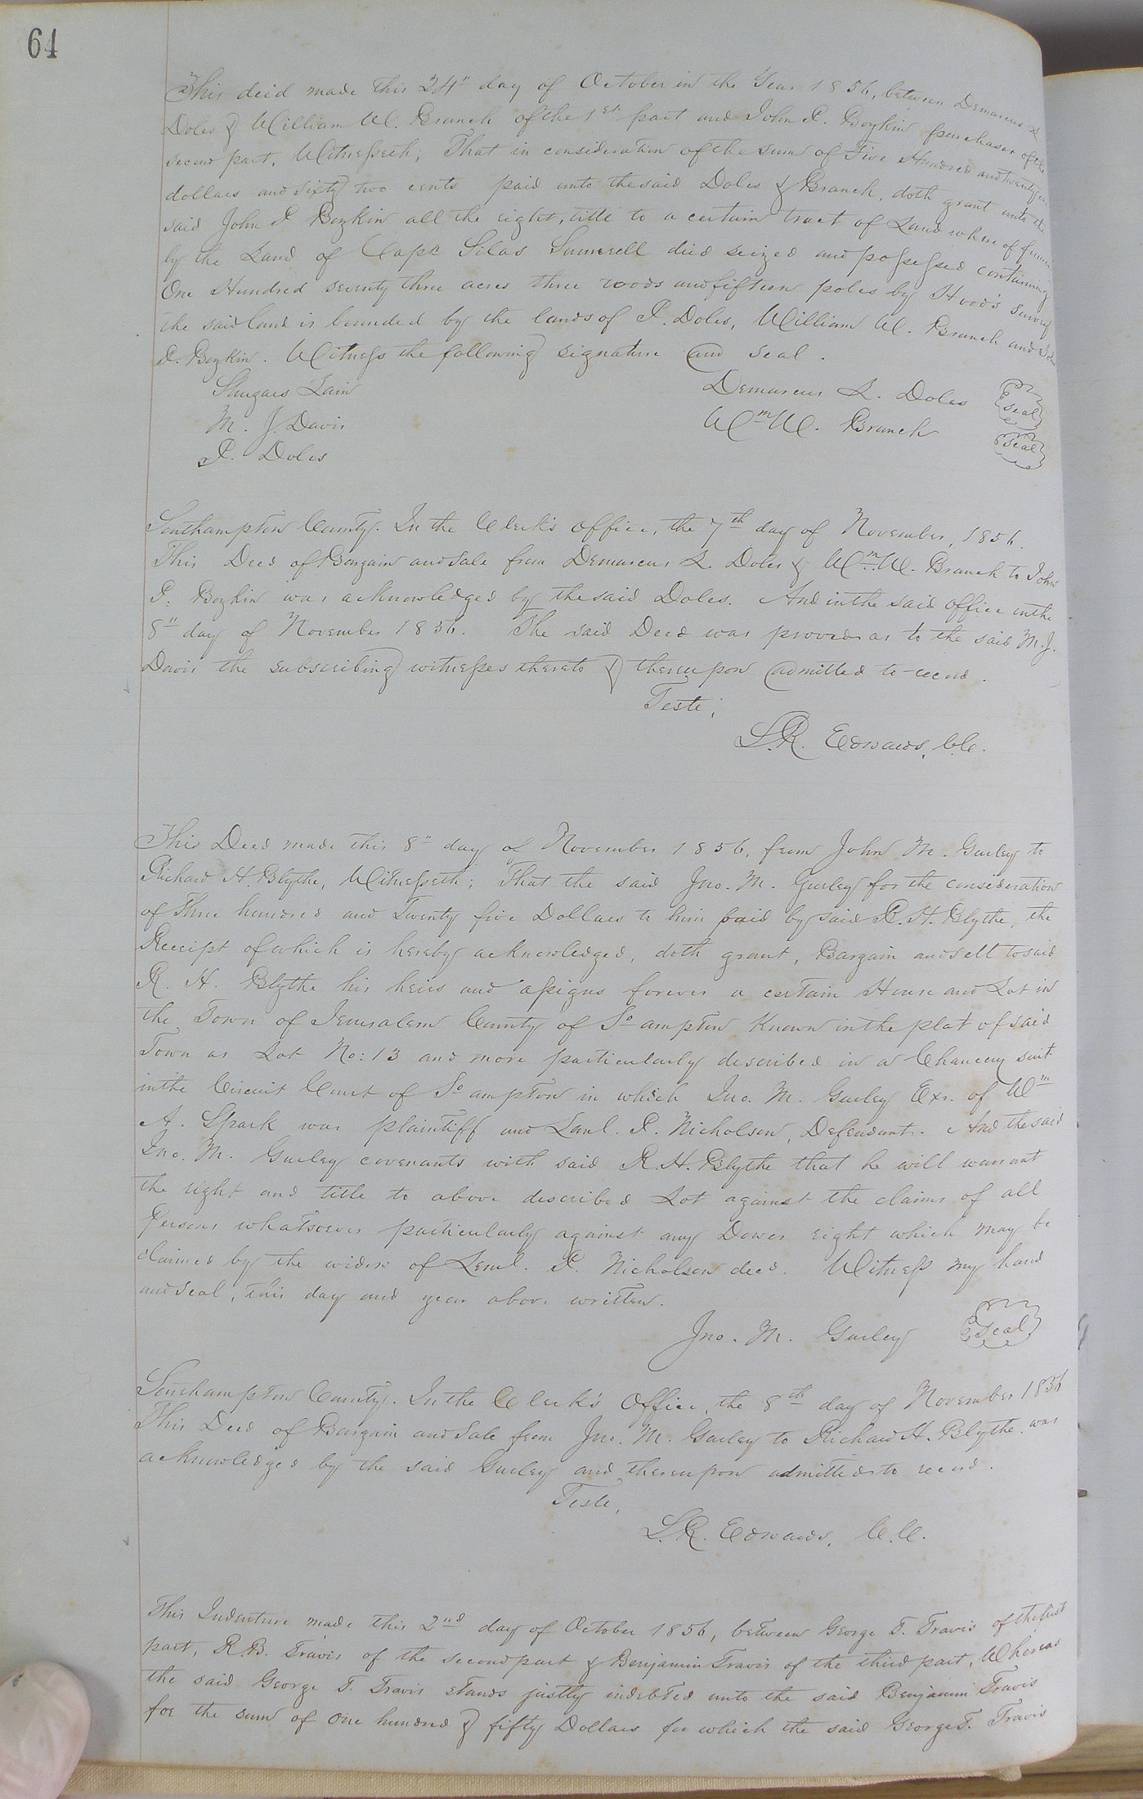 64
This deed made this 24" day of October in the Year 1856, between Demarcus L.
Doles & William W. Branch of the 1st part and John P. Boykin purchaser of the
second part, Witnesseth; That in consideration of the sum of Five Hundred and twenty
dollars and Sixty two cents paid unto the said Doles & Branch, doth grant unto the
said John P Boykin all the right, title to a certain tract of Land where of
by the Land of Capt Silas Sumerell died seized and possessed containing
One Hundred seventy three acres three roods and fifteen poles by Hood's Survey
the said land is bounded by the lands of P. Doles, William W. Branch and
P. Boykin. Witness the following signature and seal.
Lain Demarcus L. Doles Seal
M. J. Davis Wm W. Branch Seal
P. Doles
Southampton County. In the Clerk's Office, the 7th day of November, 1856.
This Deed of Bargain and Sale from Demarcus L. Doles & Wm. W. Branch to John
P. Boykin was acknowledged by the said Doles. And in the said office on the
8" day of November 1856. The said Deed was proved as to the said M. J.
Davis the subscribing witnesses thereto & thereupon admitted to record.
Teste;
L.R. Edwards, C.C.
This Deed made this 8" day of November 1856, from John M. Gurley to
Richard H. Blythe, Witnesseth; That the said Jno. M. Gurley for the consideration
of Three hundred and Twenty five Dollars to him paid by said R. H. Blythe, the
Receipt of which is hereby acknowledged, doth grant, Bargain and sell to said
R. H. Blythe his heirs and assigns forever a certain House and Lot in
the Town of Jerusalem County of So ampton Known in the plat of said
Town as Lot No: 13 and more particularly described in a Chancery suit
in the Circuit Court of So ampton in which Jno. M. Gurley Exr. of Wm
A. Spark was plaintiff and Leml. P. Nicholson, Defendant. And the said
Jno. M. Gurley covenants with said R. H. Blythe that he will warrant
the right and title to above described Lot against the claims of all
Persons whatsoever particularly against any Dower right which may be
claimed by the widow of Leml. P. Nicholson decd. Witness my hand
and seal, this day and year above written.
Jno. M. Gurley Seal
Southampton County. In the Clerk's Office, the 8th day of November 1856
This Deed of Bargain and Sale from Jno. M. Gurley to Richard H. Blythe was
acknowledged by the said Gurley and thereupon admitted to record.
Teste,
L.R. Edwards, C.C.
This Indenture made this 2nd day of October 1856, between George T. Travis of the first
part, R.B. Travis of the second part & Benjamin Travis of the third part, Whereas
the said George T. Travis stands justly indebted unto the said Benjamin Travis
for the sum of One hundred & fifty Dollars for which the said George T. Travis